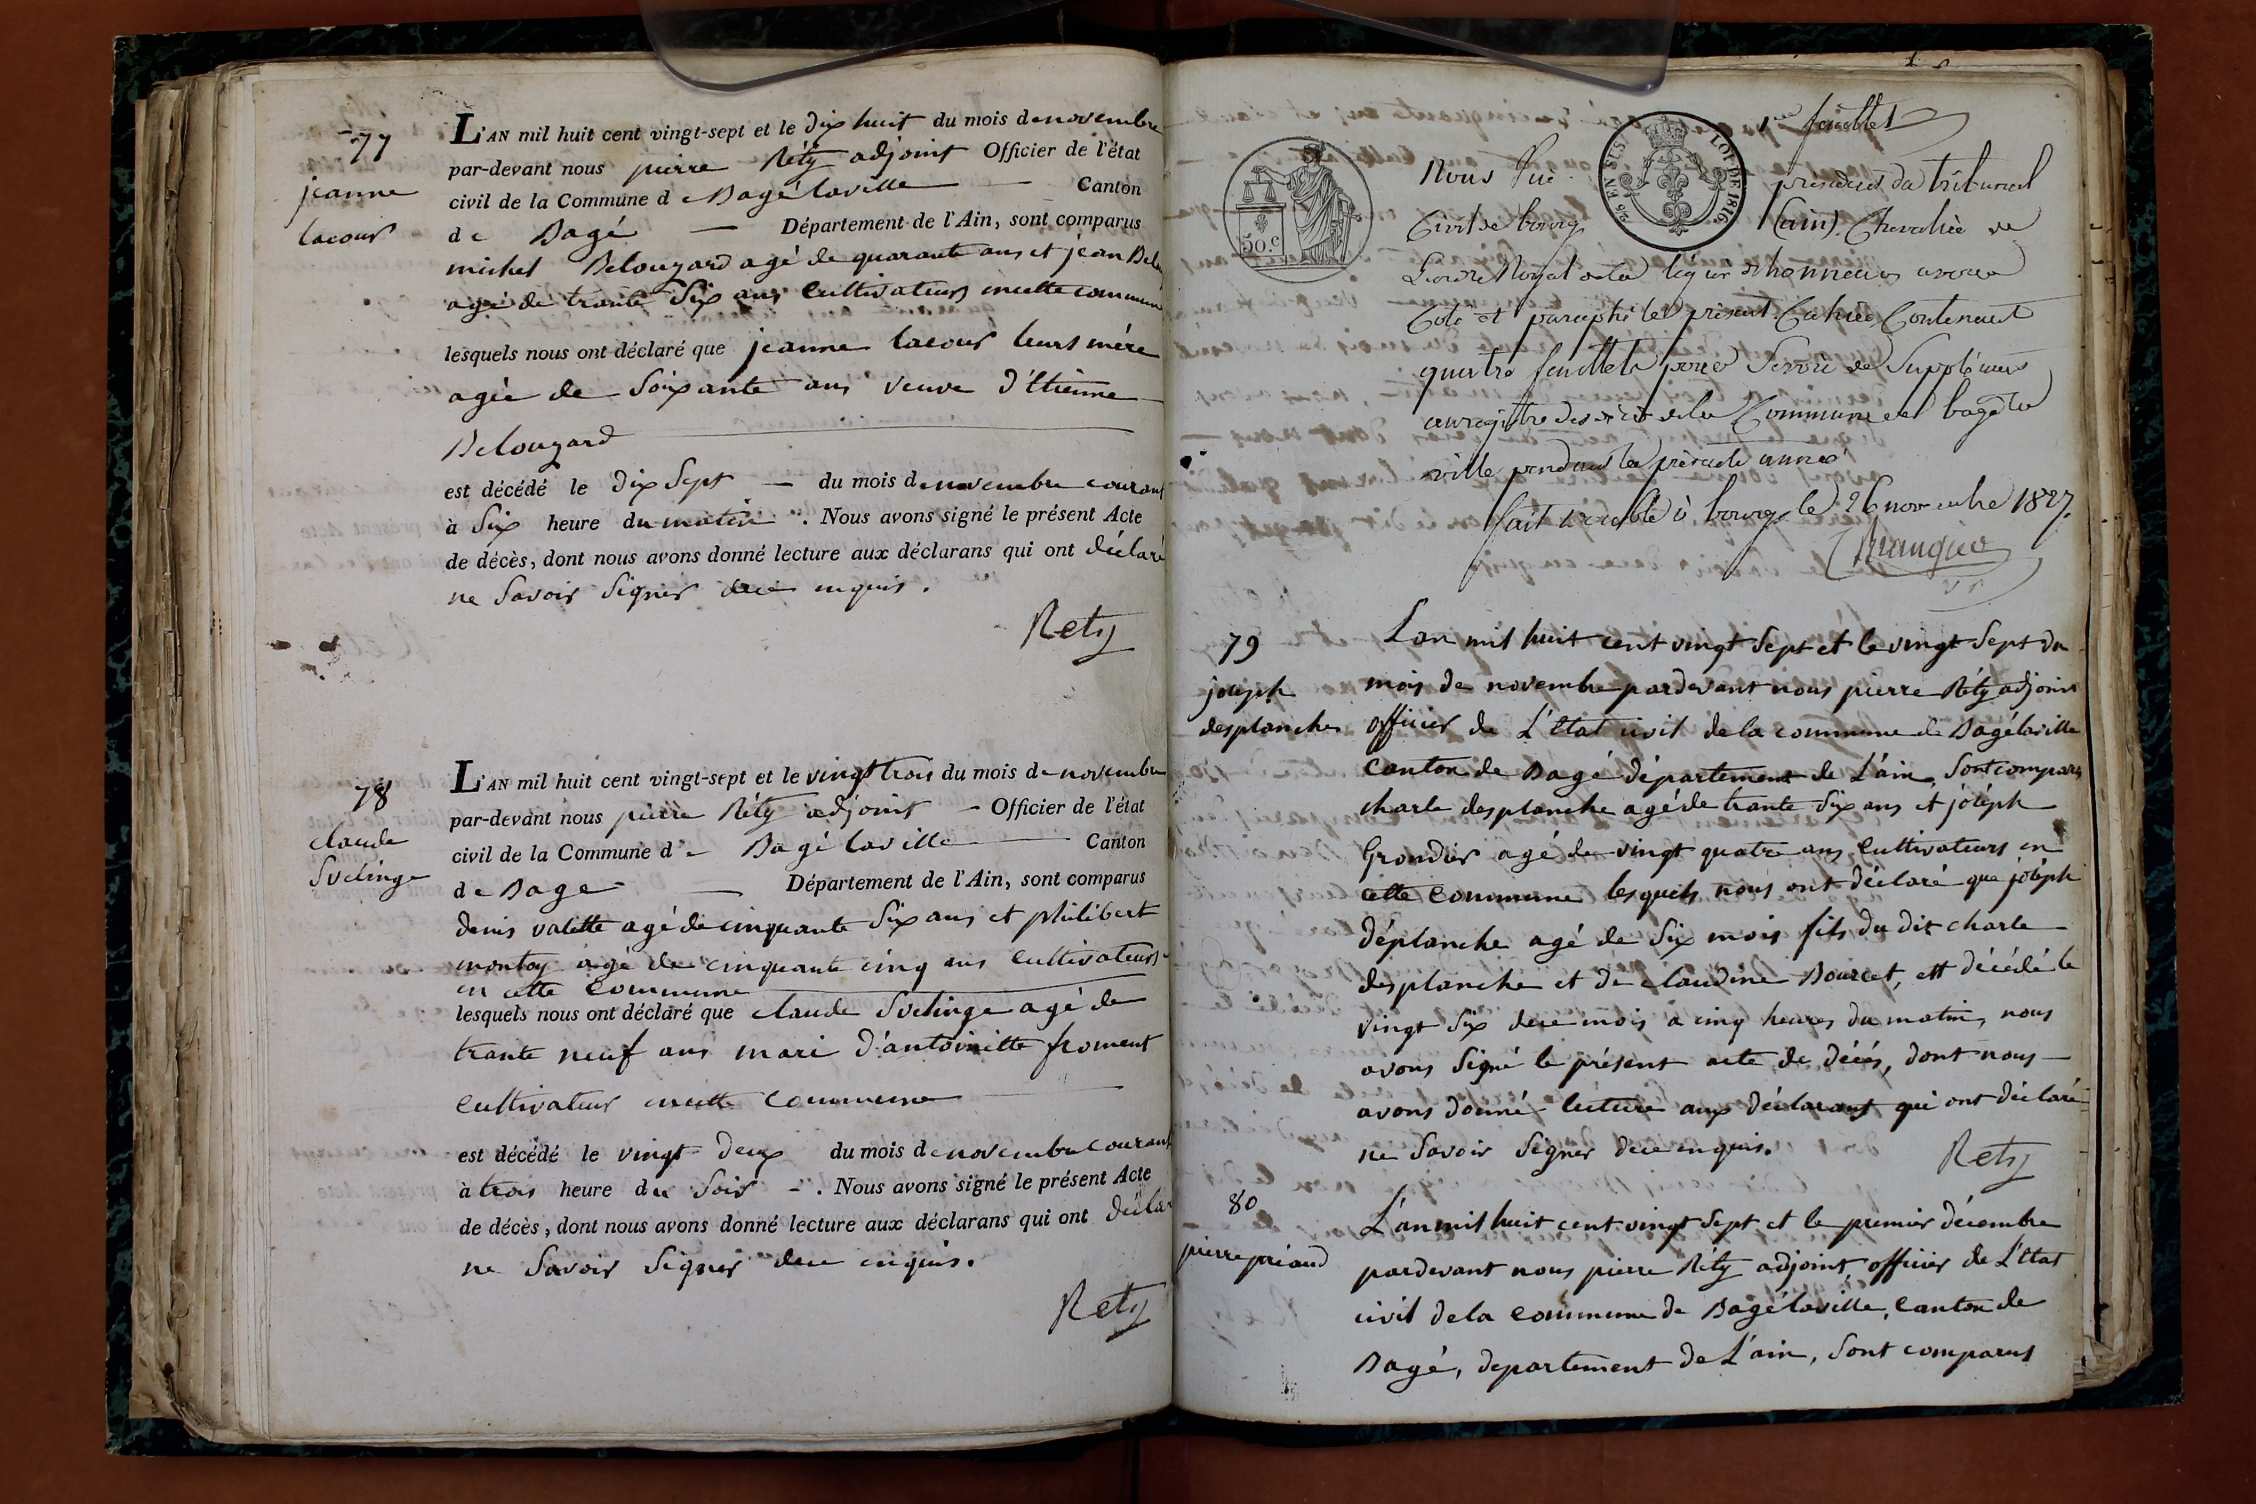 77
jeanne
lacour
L'AN mil huit cent vingt-sept et le dix huit du mois de novembre
par-devant nous pierre Réty adjoint Officier de l'état
civil de la Commune de Bagé laville Canton
de Bagé Département de l'Ain, sont comparus
michel Belouzard agé de quarante ans et jean Belou
agé de trante Six ans Cultivateurs encette commune
lesquels nous ont déclaré que jeanne lacour leurs mére
agée de Soixante ans veuve d'Etienne
Belouzard
est décédé le dix Sept du mois de novembre courant
à Six heure du matin . Nous avons signé le présent Acte
de décès, dont nous avons donné lecture aux déclarans qui ont déclaré
ne Savoir Signer dece enquis.
Rety
78
claude
Svelinge
L'AN mil huit cent vingt-sept et le vingt trois du mois de novembre
par-devant nous pierre Réty adjoint Officier de l'état
civil de la Commune de Bagé laville Canton
de Bage Département de l'Ain, sont comparus
denis valette agé de cinquante Six ans et philibert
montoy agé de cinquante cinq ans Cultivateurs
en cette Commune
lesquels nous ont déclaré que claude Svelinge agé de
trante neuf ans mari d'antoinette froment
Cultivateur encette Commune
est décédé le vingt deux du mois de novembre courant
à trois heure du Soir . Nous avons signé le présent Acte
de décès, dont nous avons donné lecture aux déclarans qui ont décla
ne Savoir Signer dece enquis.
Rety
1er feuillet
50.c
26 EN SUS.
LOI DE 1816.
Nous president du tribunal
Civil de bourg (ain) Chevalier de
L'ordre Royal de la légion d'honneur avons
Coté et paraphé le présent Cahier Contenant
quatre feuillets pour Servir de Supplément
au registre des décès de la Commune de bagé la
ville pendant la présente année
fait double à bourg le 26 novembre 1827.
79
joseph
desplanche
L'an mil huit cent vingt Sept et le vingt Sept du
mois de novembre pardevant nous pierre Réty adjoint
officier de L'Etat civil de la commune de Bagé laville
Canton de Bagé département de L'ain, Sont comparus
charle desplanche agé de trante Six ans et joséph
Grondier agé de vingt quatre ans Cultivateurs en
cette Commune lesquels nous ont déclaré que joséph
déplanche agé de Six mois fils du dit charle
desplanche et de claudine Bourcet, est décédé le
vingt Six dece mois a cinq heures du matin, nous
avons Signé le présent acte de décés, dont nous
avons donné lecture aux déclarants qui ont déclaré
ne Savoir Signer dece enquis.
Rety
80
pierre préaud
L'an mil huit cent vingt Sept et le premier décembre
pardevant nous pierre Réty adjoint officier de L'Etat
civil dela Commune de Bagé laville, Canton de
Bagé, departement de L'ain, Sont comparus